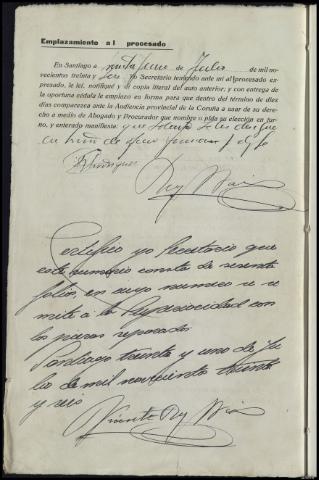 Emplazamiento al procesado
En Santiago a treinta uno de Julio de mil no-
vecientos treinta y seis yo Secretario teniendo ante mi al procesado ex-
presado, le lei, notifiqué y di copia literal del auto anterior; y con entrega de
la oportuna cédula le emplazo en forma para que dentro del término de diez
días comparezca ante la Audiencia provincial de la Coruña a usar de su derecho
a medio de Abogado y Procurador que nombre o pida su elección en tur-
no, y enterado manifiesta: que se le
en de y
Rodriguez
Rey
Certifico yo Secretario que
este sumario consta de sesenta
folios, en cuyo numero se re
mite a la Superioridad con
las piezas separadas
Santiago treinta y uno de Ju
lio de mil novecientos treinta
y seis
Vicente Rey